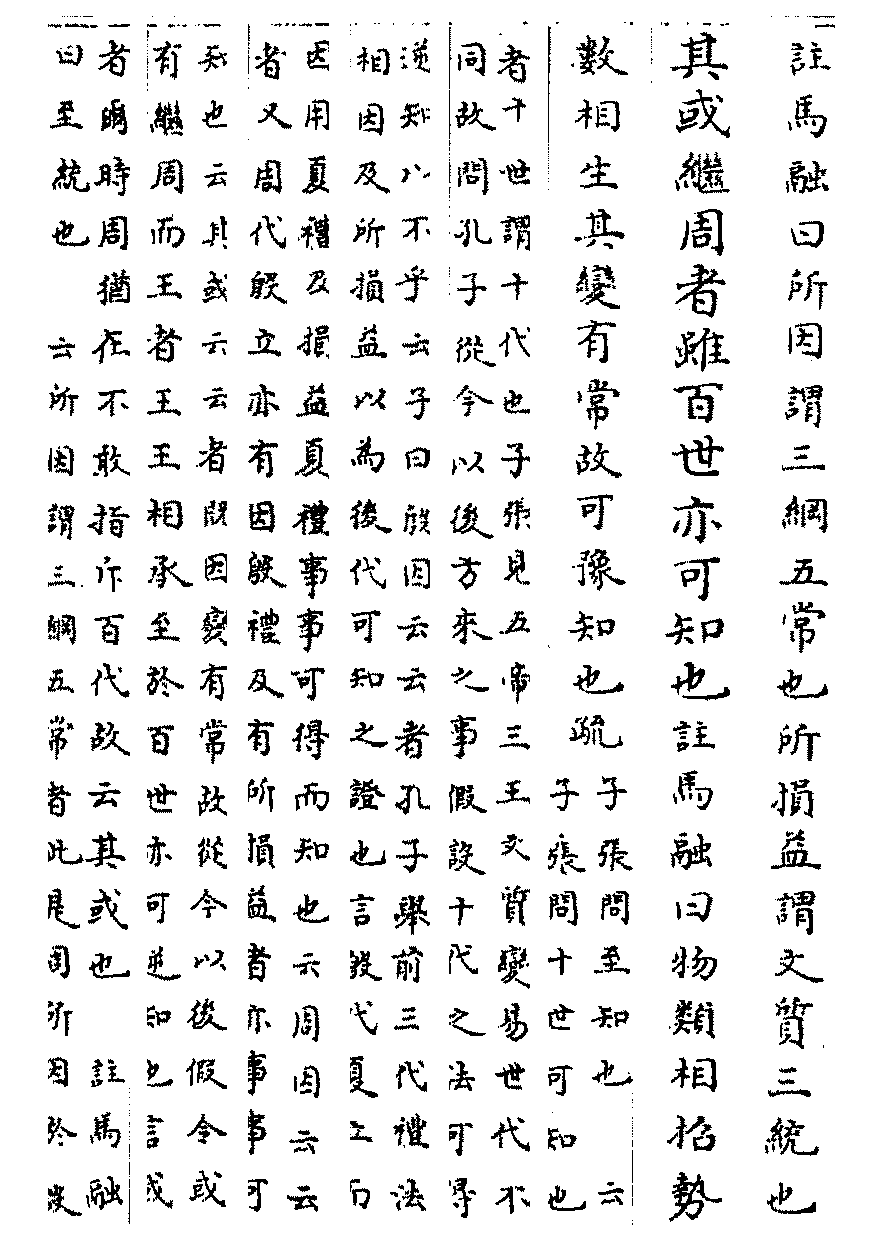 註馬融曰所因謂三綱五常也所損益謂文質三統也
其或繼周者雖百世亦可知也註馬融曰物類相招勢
數相生其變有常故可豫知也疏
子張問至知也　云
子張問十世可知也
者十世謂十代也子張見五帝三王文質變易世代不
同故問孔子從今以後方來之事假設十代之法可得
逆知以不乎云子曰殷因云云者孔子舉前三代禮法
相因及所損益以為後代可知之證也言殷代夏立而
因用夏禮及損益夏禮事事可得而知也云周因云云
者又周代殷立亦有因殷禮及有所損益者亦事事可
知也云其或云云者既因變有常故從今以後假令或
有繼周而王者王王相承至於百世亦可逆知也言或
者爾時周猶在不敢指斥百代故云其或也　註馬融
曰至統也　云所因謂三綱五常者此是周所因於殷